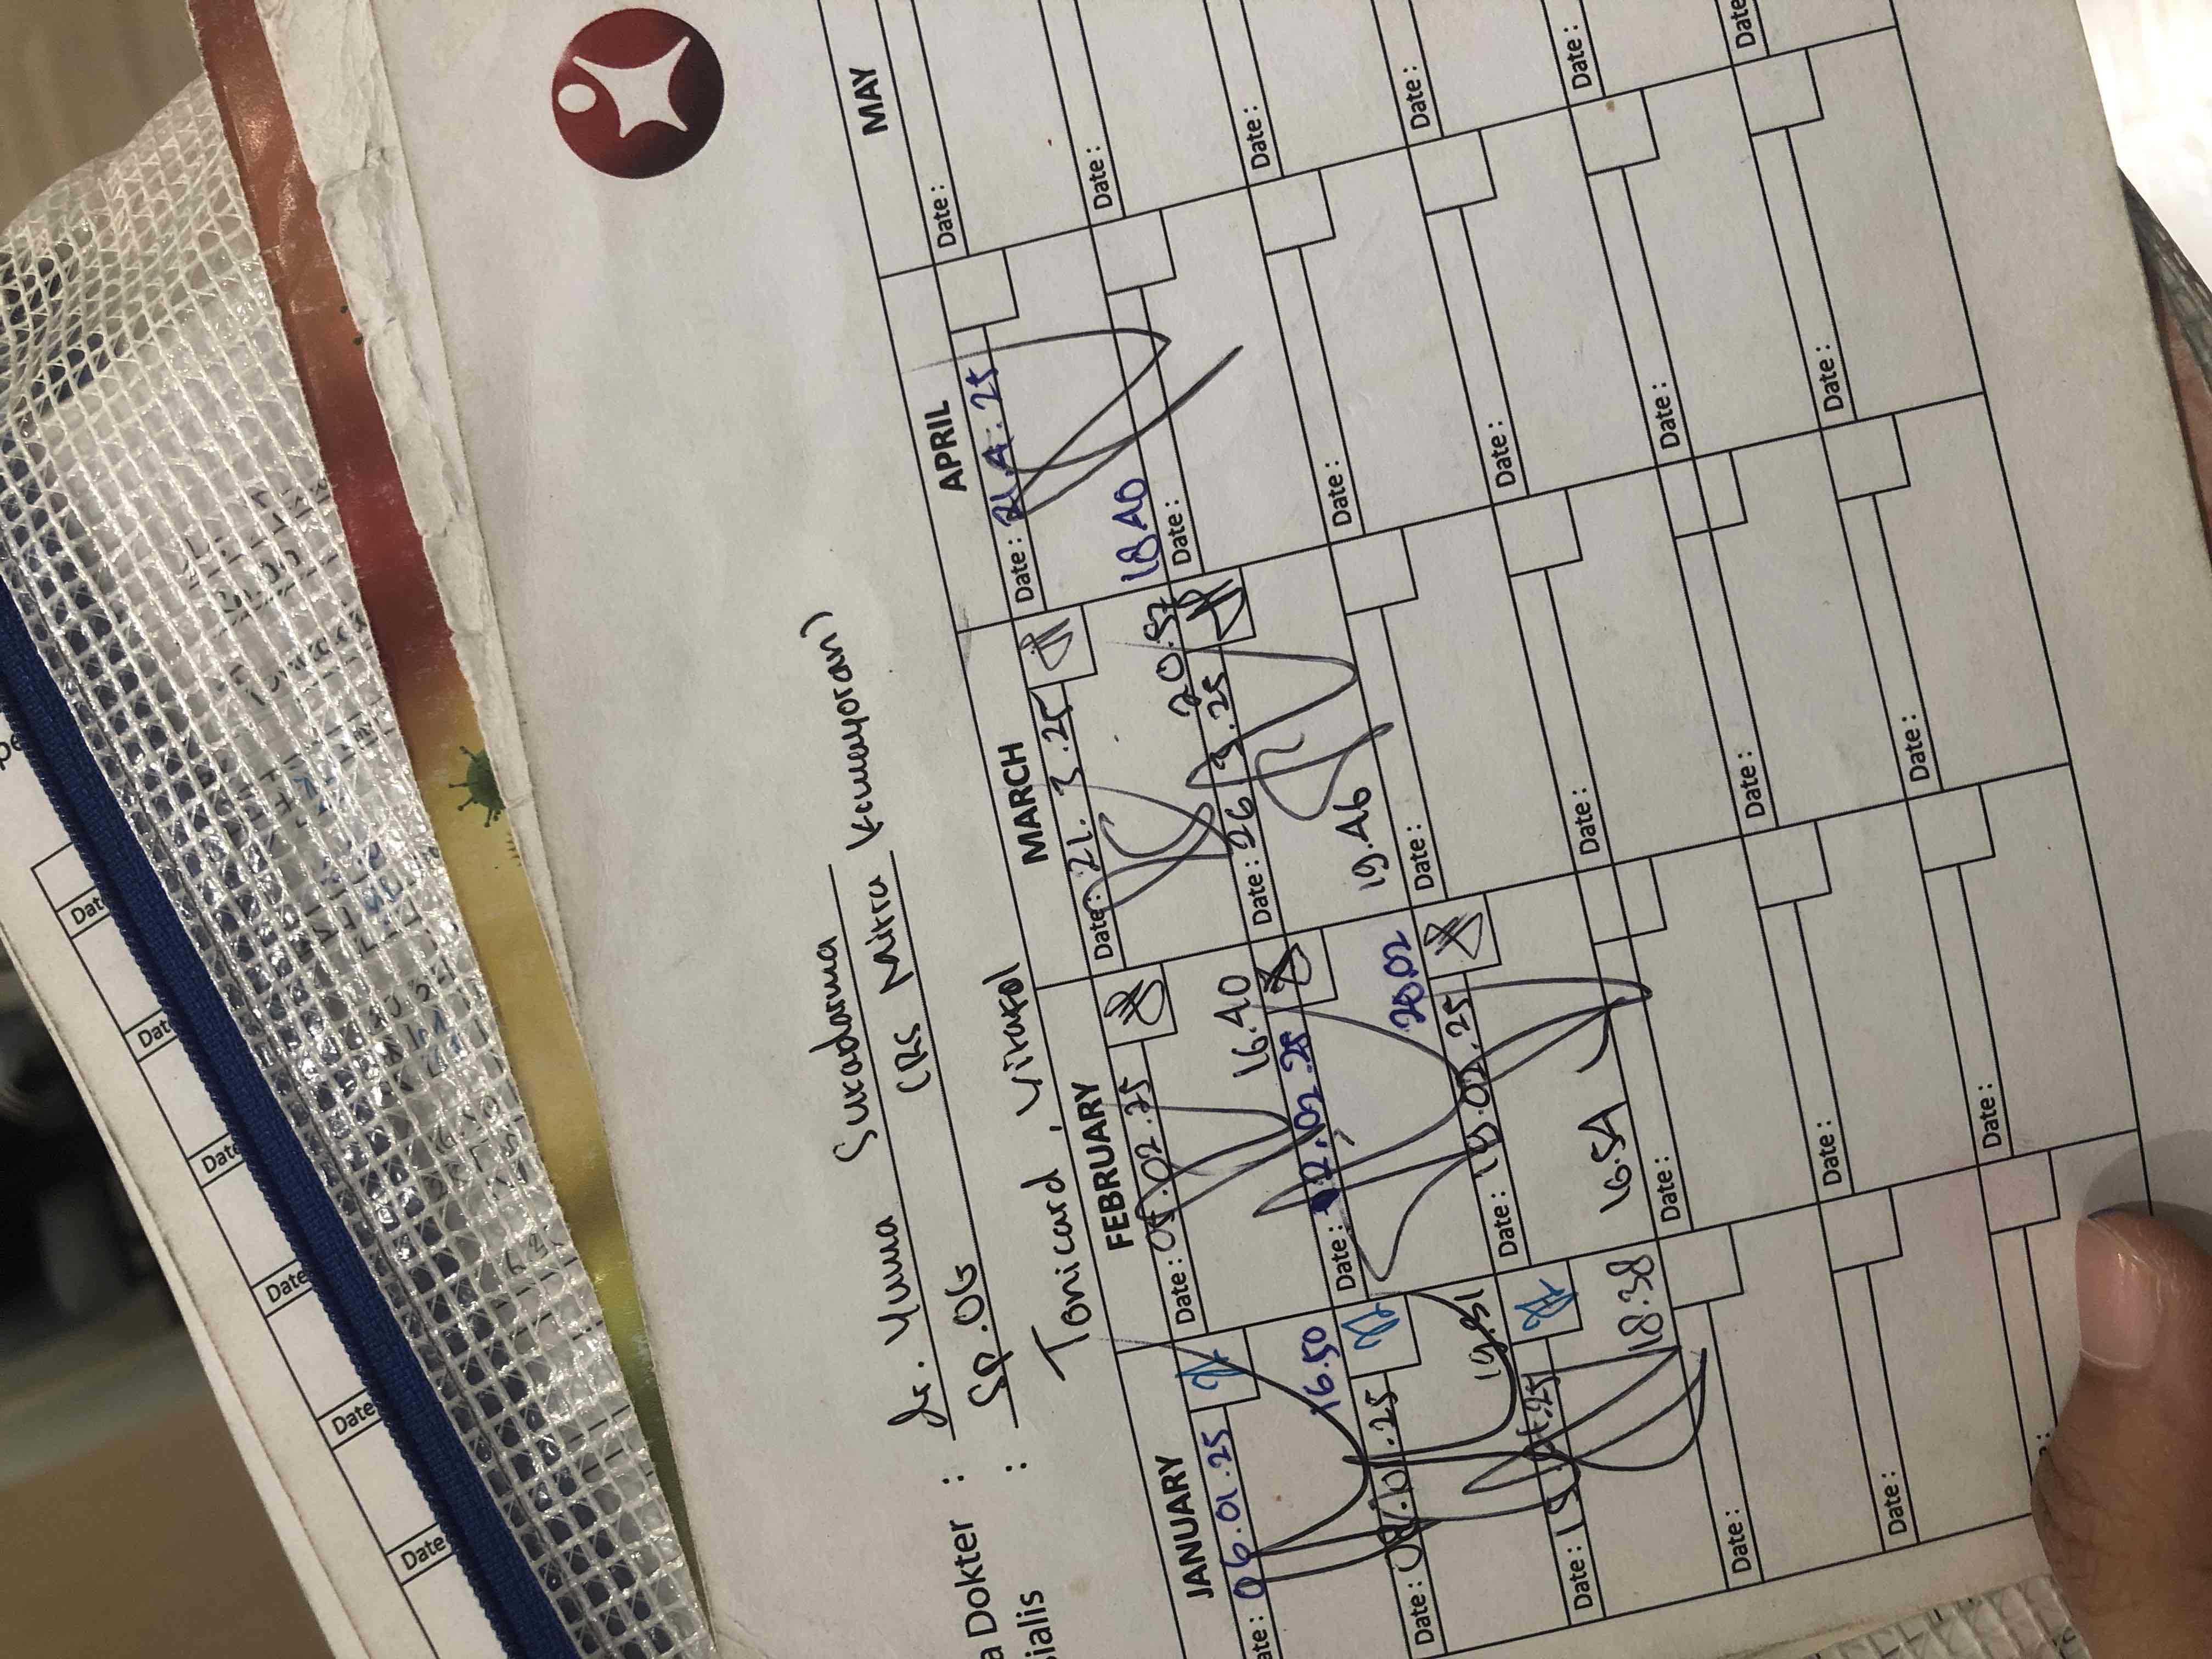 a Dokter : dr. Yuma Sukadarma
sialis : SP.OG (RS Mitra Kemayoran)
Tonicard, Viratol
JANUARY FEBRUARY MARCH APRIL MAY
ate: 06.01.25 Date: 05.02.25 Date: 21.3.25 Date: 21.4.25 Date:
16.50 16.40 20.57 18.40
Date: 01.25 Date: 12.02.25 Date: 26.3.25 Date: Date:
19.51 20.02 19.46
Date: Date: 19.02.25 Date: Date: Date:
18.38 16.54
Date: Date: Date: Date: Date:
Date: Date: Date: Date: Date:
Date: Date: Date:
Date
Date
Date
Date
Date
Date